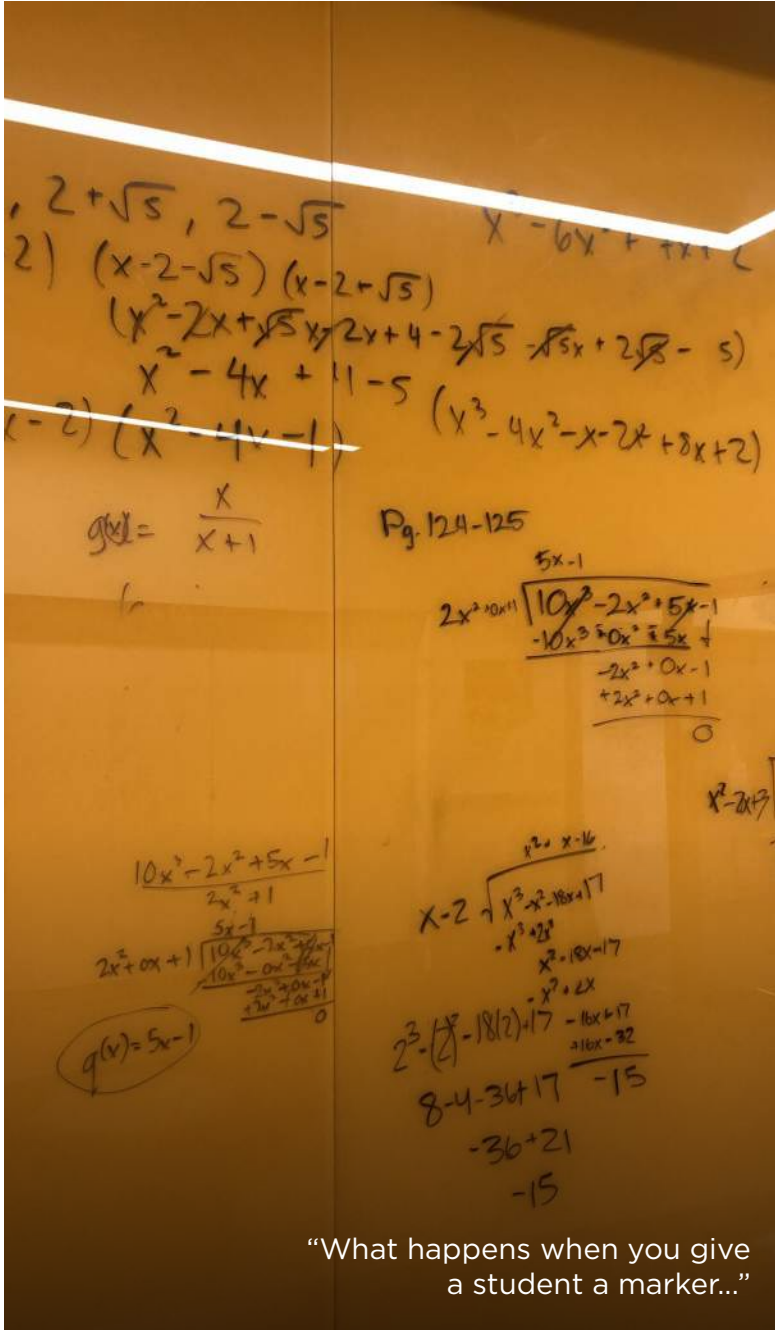 , 2+√5, 2-√5
x³-6x²+7x+2
2) (x-2-√5)(x-2+√5)
(x²-2x+√5x-2x+4-2√5-√5x+2√5-5)
x²-4x+4-5
x-2)(x²-4x-1)
(x³-4x²-x-2x²+8x+2)
g(x)= x
x+1
Pg. 124-125
5x-1
2x²+0x+1 10x³-2x²+5x-1
-10x³+0x²+5x
-2x²+0x-1
+2x²+0x+1
0
x²-2x+3
10x³-2x²+5x-1
2x²+1
5x-1
2x²+0x+1 10x³-2x²+5x-1
-10x³-0x²-5x
-2x²+0x-1
+2x²+0x+1
0
q(x)=5x-1
x²+x-16
x-2 x³-x²-18x+17
-x³+2x²
x²-18x+17
-x²+2x
-16x+17
+16x-32
-15
2³-(2)²-18(2)+17
8-4-36+17
-36+21
-15
“What happens when you give
a student a marker...”